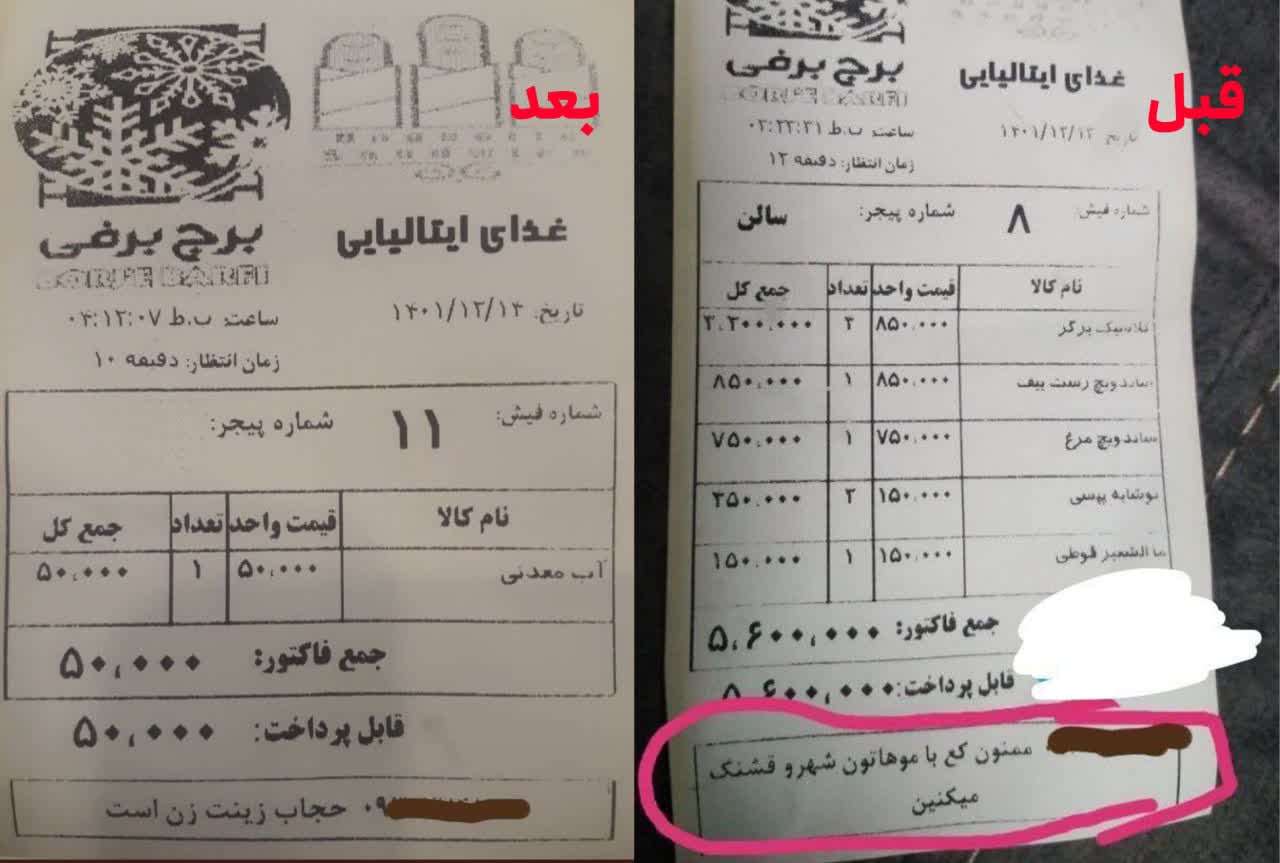 قبل
برج برفی غذای ایتالیایی
BORJE BARFI
تاریخ: ساعت: ب.ظ
زمان انتظار: دقیقه
شماره فیش: ۸ شماره پیجر: سالن
نام کالا قیمت واحد تعداد جمع کل
کلاسیک برگر ۸۵۰.۰۰۰ ۴ ۳.۴۰۰.۰۰۰
ساندویچ رست بیف ۸۵۰.۰۰۰ ۱ ۸۵۰.۰۰۰
ساندویچ مرغ ۷۵۰.۰۰۰ ۱ ۷۵۰.۰۰۰
نوشابه پپسی ۱۵۰.۰۰۰ ۳ ۴۵۰.۰۰۰
ما الشعیر قوطی ۱۵۰.۰۰۰ ۱ ۱۵۰.۰۰۰
جمع فاکتور: ۵,۶۰۰,۰۰۰
قابل پرداخت: ۵,۶۰۰,۰۰۰
ممنون کع با موهاتون شهرو قشنک
میکنین
بعد
برج برفی غذای ایتالیایی
BORJE BARFI
تاریخ: ۱۴۰۱/۱۲/۱۴ ساعت: ب.ظ
زمان انتظار: دقیقه ۱۰
شماره فیش: ۱۱ شماره پیجر:
نام کالا قیمت واحد تعداد جمع کل
آب معدنی ۵۰.۰۰۰ ۱ ۵۰.۰۰۰
جمع فاکتور: ۵۰,۰۰۰
قابل پرداخت: ۵۰,۰۰۰
۰۹ حجاب زینت زن است